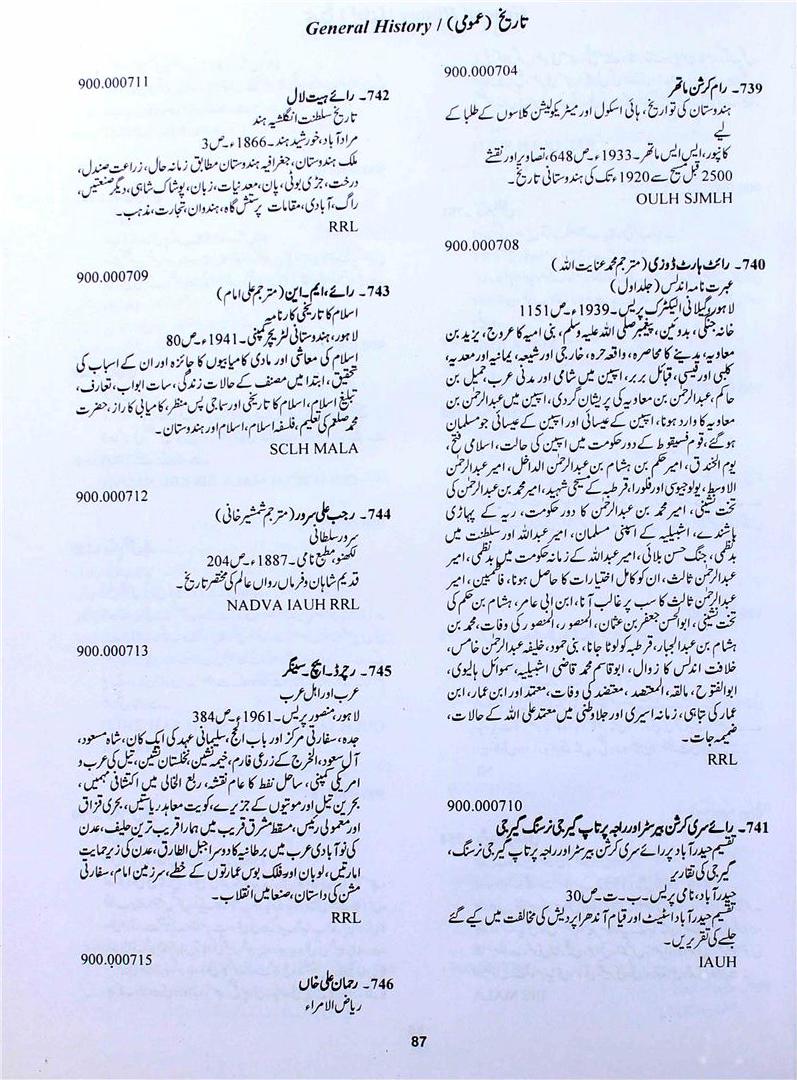 تاریخ (عمومی) / General History
900.000704
739۔ رام کرشن ماتھر
ہندوستان کی تواریخ، ہائی اسکول اور میٹریکولیشن کلاسوں کے طلبا کے
لیے
کانپور، ایس ایس ماتھر۔ 1933ء۔ ص648، تصاویر اور نقشے
2500 قبل مسیح سے 1920ء تک کی ہندوستانی تاریخ۔
OULH SJMLH
900.000708
740۔ رائٹ ہارٹ ڈوزی (مترجم محمد عنایت اللہ)
عبرت نامہ اندلس (جلد اول)
لاہور، گیلانی الیکٹرک پریس۔ 1939ء۔ ص1151
خانہ جنگی، بدوئین، پیغمبر صلی اللہ علیہ وسلم، بنی امیہ کا عروج، یزید بن
معاویہ، مدینے کا محاصرہ، واقعہ حرہ، خارجی اور شیعہ، یمانیہ اور معدیہ،
کلبی اور قیسی، قبائل بربر، اسپین میں شامی اور مدنی عرب، جمیل بن
حاکم، عبدالرحمٰن بن معاویہ کی پریشان گردی، اسپین میں عبدالرحمٰن بن
معاویہ کا وارد ہونا، اسپین کے عیسائی اور اسپین کے عیسائی جو مسلمان
ہوگئے، قوم فسیقوط کے دور حکومت میں اسپین کی حالت، اسلامی فتح،
یوم الخندق، امیر حکم بن ہشام بن عبدالرحمٰن الداخل، امیر عبدالرحمٰن
الاوسط، یولوجیوس اور فلورا، قرطبہ کے مسیحی شہید، امیر محمد بن عبدالرحمٰن کی
تخت نشینی، امیر محمد بن عبدالرحمٰن کا دور حکومت، ریہ کے پہاڑی
باشندے، اشبیلیہ کے اسپنی مسلمان، امیر عبداللہ اور سلطنت میں
بدنظمی، جنگ حسن بلائی، امیر عبداللہ کے زمانہ حکومت میں بدنظمی، امیر
عبدالرحمٰن ثالث، ان کو کامل اختیارات کا حاصل ہونا، فاطمیین، امیر
عبدالرحمٰن ثالث کا سب پر غالب آنا، ابن ابی عامر، ہشام بن حکم کی
تخت نشینی، ابوالحسن جعفر بن عثمان، المنصور، المنصور کی وفات، محمد بن
ہشام بن عبدالجبار، قرطبہ کو لوٹا جانا، بنی حمود، خلیفہ عبدالرحمٰن خامس،
خلافت اندلس کا زوال، ابوقاسم محمد قاضی اشبیلیہ، سموائل ہالیوی،
ابوالفتوح، مالقہ، المعتضد، معتضد کی وفات، معتمد اور ابن عمار، ابن
عمار کی تباہی، زمانہ اسیری اور جلاوطنی میں معتمد علی اللہ کے حالات،
ضمیمہ جات۔
RRL
900.000710
741۔ رائے سری کرشن بیرسٹر اور راجہ پرتاپ گیرجی نرسنگ گیرجی
تقسیم حیدرآباد پر رائے سری کرشن بیرسٹر اور راجہ پرتاپ گیرجی نرسنگ،
گیرجی کی تقاریر
حیدرآباد، نامی پریس۔ ب۔ ت۔ ص30
تقسیم حیدرآباد اسٹیٹ اور قیام آندھرا پردیش کی مخالفت میں کیے گئے
جلسے کی تقریریں۔
IAUH
900.000711
742۔ رائے ہیت لال
تاریخ سلطنت انگلشیہ ہند
مرادآباد، خورشید ہند۔ 1866ء۔ ص3
ملک ہندوستان، جغرافیہ ہندوستان مطابق زمانہ حال، زراعت صندل،
درخت، جڑی بوٹی، پان، معدنیات، زبان، پوشاک شاہی، دیگر صنعتیں،
راگ، آبادی، مقامات پرستش گاہ، ہندوان، تجارت، مذہب۔
RRL
900.000709
743۔ رائے، ایم۔ این (مترجم علی امام)
اسلام کا تاریخی کارنامہ
لاہور، ہندوستانی لٹریچر کمپنی۔ 1941ء۔ ص80
اسلام کی معاشی اور مادی کامیابیوں کا جائزہ اور ان کے اسباب کی
تحقیق، ابتدا میں مصنف کے حالات زندگی، سات ابواب، تعارف،
تبلیغ اسلام، اسلام کا تاریخی اور سماجی پس منظر، کامیابی کا راز، حضرت
محمد صلعم کی تعلیم، فلسفہ اسلام، اسلام اور ہندوستان۔
SCLH MALA
900.000712
744۔ رجب علی سرور (مترجم شمشیر خانی)
سرور سلطانی
لکھنو، مطبع نامی۔ 1887ء۔ ص204
قدیم شاہان و فرماں رواں عالم کی مختصر تاریخ۔
NADVA IAUH RRL
900.000713
745۔ رچرڈ۔ ایچ۔ سینگر
عرب اور اہل عرب
لاہور، منصور پریس۔ 1961ء۔ ص384
جدہ، سفارتی مرکز اور باب الحج، سلیمانی عہد کی ایک کان، شاہ سعود،
آل سعود، الخرج کے زرعی فارم، خیمہ نشین نخلستان نشین، تیل کی عرب و
امریکی کمپنی، ساحل نفط کا عام نقشہ، ربع الخالی میں اکتشافی مہمیں،
بحرین تیل اور موتیوں کے جزیرے، کویت معاہد ریاستیں، بحری قزاق
اور معمولی رئیس، مسقط مشرق قریب میں ہمارا قریب ترین حلیف، عدن
کی نوآبادی عرب میں برطانیہ کا دوسرا جبل الطارق، عدن کی زیرحمایت
امارتیں، لوبان اور فلک بوس عمارتوں کے خطے، سرزمین امام، سفارتی
مشن کی داستان، صنعا میں انقلاب۔
RRL
900.000715
746۔ رحمان علی خاں
ریاض الامراء
87